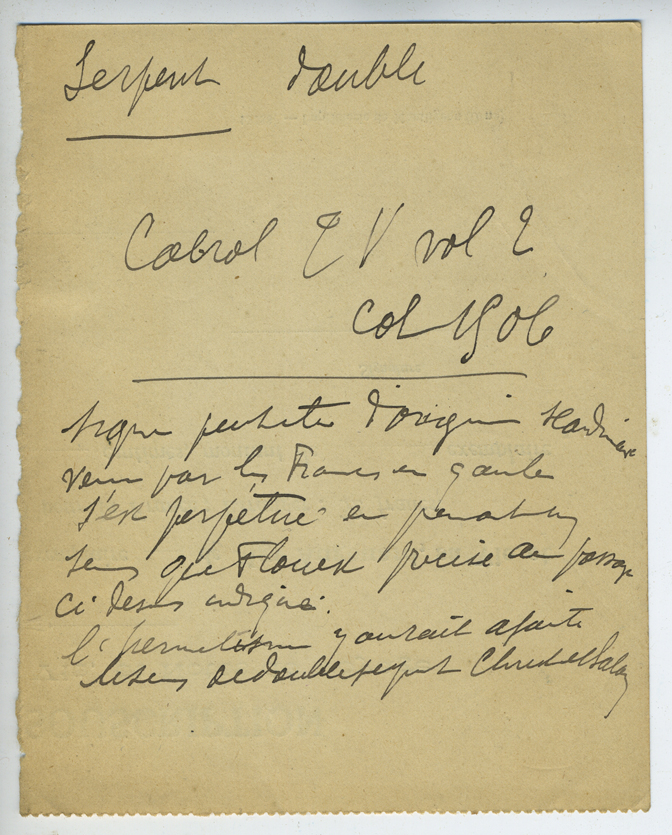 Serpent double
Cabrol T V vol 2
col 1506
signe peut etre d'origine scandinave
venu par les Francs en gaule
s'est perpétué en prenant un
sens que precise au passage
ci dessus indiqué.
l'hermetisme y aurait ajouté
le sens de double serpent Christ et Satan